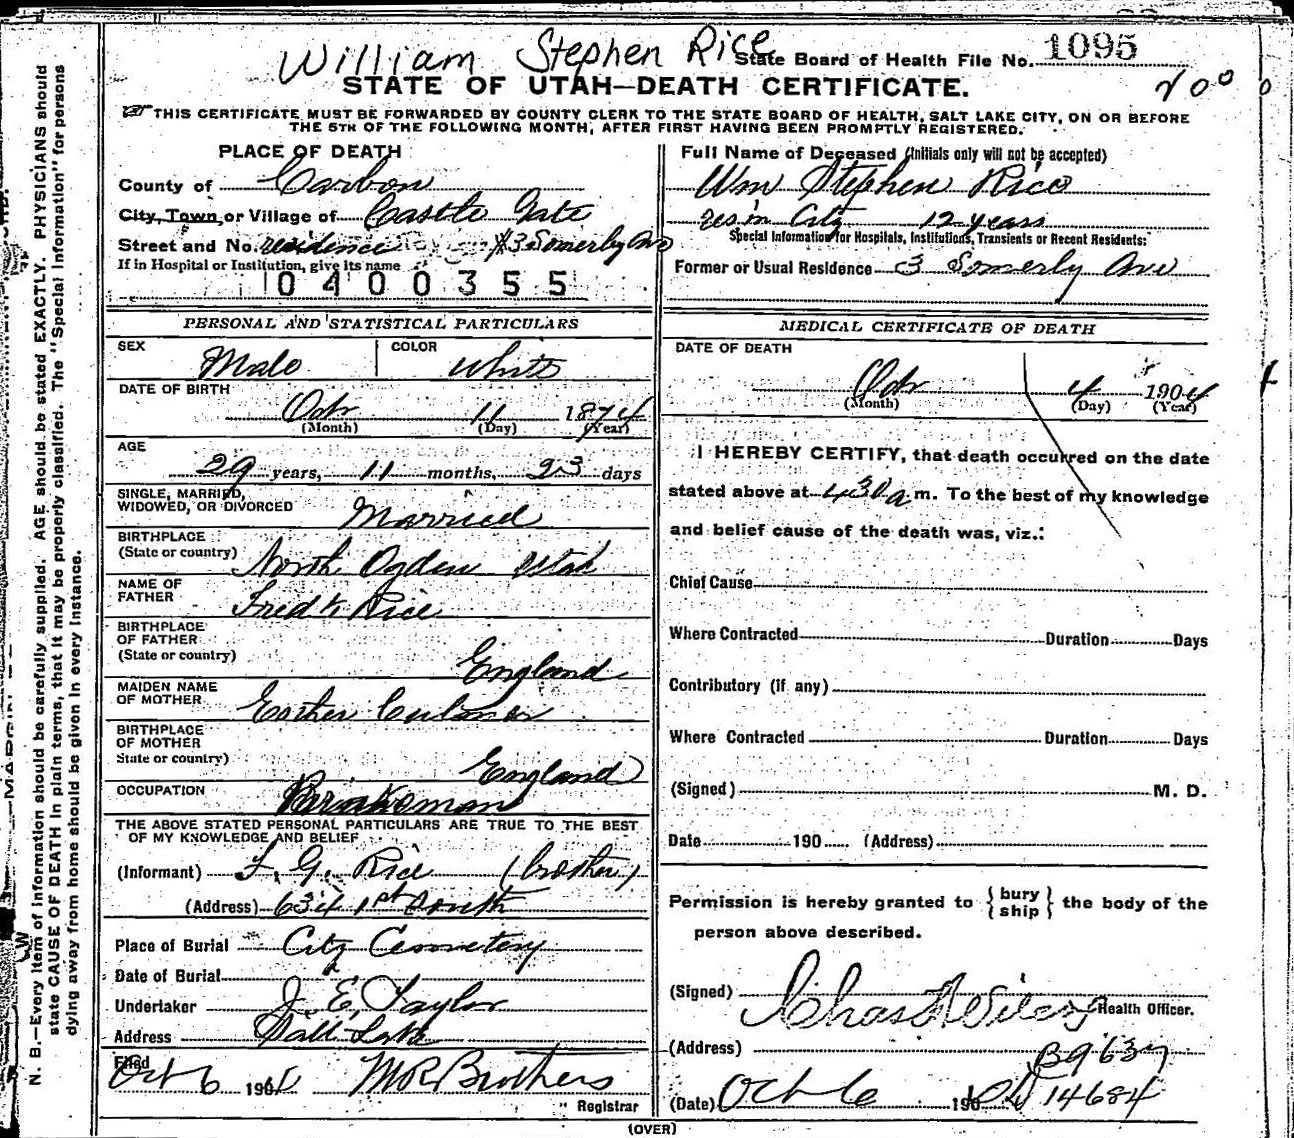 William Stephen Rice
State Board of Health File No. 1095
STATE OF UTAH—DEATH CERTIFICATE.
THIS CERTIFICATE MUST BE FORWARDED BY COUNTY CLERK TO THE STATE BOARD OF HEALTH, SALT LAKE CITY, ON OR BEFORE
THE 5TH OF THE FOLLOWING MONTH, AFTER FIRST HAVING BEEN PROMPTLY REGISTERED.
PLACE OF DEATH
County of Carbon
City, Town, or Village of Castle Gate
Street and No. residence #3 Somerby Ave
If in Hospital or Institution, give its name
0400355
Full Name of Deceased (Initials only will not be accepted)
Wm Stephen Rice
res in City 12 years
Special Information for Hospitals, Institutions, Transients or Recent Residents:
Former or Usual Residence 3 Somerly Ave
PERSONAL AND STATISTICAL PARTICULARS
SEX Male COLOR White
DATE OF BIRTH
Octr 11 1874
(Month) (Day) (Year)
AGE
29 years, 11 months, 23 days
SINGLE, MARRIED,
WIDOWED, OR DIVORCED Married
BIRTHPLACE
(State or country) North Ogden Utah
NAME OF
FATHER Fredk Rice
BIRTHPLACE
OF FATHER
(State or country) England
MAIDEN NAME
OF MOTHER Esther Culmer
BIRTHPLACE
OF MOTHER
State or country) England
OCCUPATION Brakeman
THE ABOVE STATED PERSONAL PARTICULARS ARE TRUE TO THE BEST
OF MY KNOWLEDGE AND BELIEF
(Informant) F. G. Rice (brother)
(Address) 634 1st South
Place of Burial City Cemetery
Date of Burial
Undertaker J. E. Taylor
Address Salt Lake
Filed
Oct 6 1904 M R Brothers
Registrar
MEDICAL CERTIFICATE OF DEATH
DATE OF DEATH
Octr 4 1904
(Month) (Day) (Year)
I HEREBY CERTIFY, that death occurred on the date
stated above at 430 a m. To the best of my knowledge
and belief cause of the death was, viz.:
Chief Cause
Where Contracted Duration Days
Contributory (if any)
Where Contracted Duration Days
(Signed) M. D.
Date 190 (Address)
Permission is hereby granted to {bury
ship} the body of the
person above described.
(Signed) Health Officer.
(Address) B9637
(Date) Oct 6 190 14684
(OVER)
N. B.—Every item of information should be carefully supplied. AGE should be stated EXACTLY. PHYSICIANS should
state CAUSE OF DEATH in plain terms, that it may be properly classified. The "Special Information" for persons
dying away from home should be given in every instance.